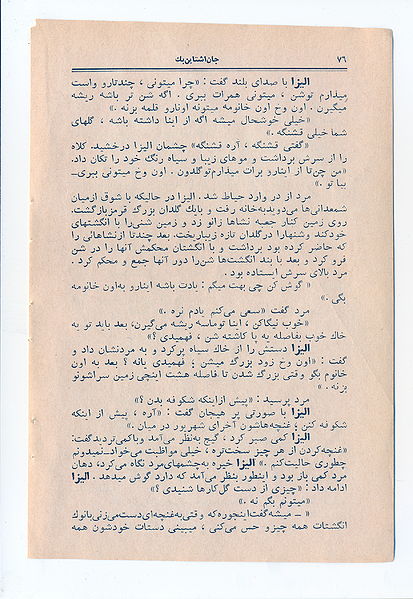 ۷۶
جان‌اشتاین‌بك
الیزا با صدای بلند گفت : «چرا میتونی ، چندتارو واست
میذارم توشن ، میتونی همرات ببری . اگه شن تر باشه ریشه
میگیرن . اون وخ اون خانومه میتونه اونارو قلمه بزنه .»
«خیلی خوشحال میشه اگه از اینا داشته باشه ، گلهای
شما خیلی قشنگه .»
«گفتی قشنگه ، آره قشنگه» چشمان الیزا درخشید. کلاه
را از سرش برداشت و موهای زیبا و سیاه رنگ خود را تکان داد.
«من چن‌تا از اینارو برات میذارم‌تو گلدون . اون وخ میتونی ببری‌ـ
بیا تو .»
مرد از در وارد حیاط شد . الیزا در حالیکه با شوق ازمیان
شمعدانی‌ها می‌دوید به‌خانه رفت و بایك گلدان بزرگ قرمز بازگشت.
روی زمین کنار جعبه نشاها زانو زد و زمین شنی‌را با انگشتهای
خودکند وشنهارا درگلدان تازه زیباریخت. بعد چندتا ازنشاهائی را
که حاضر کرده بود برداشت و با انگشتان محکمش آنها را در شن
فرو کرد و بعد با بند انگشت‌ها شن‌را دور آنها جمع و محکم کرد .
مرد بالای سرش ایستاده بود .
«گوش کن چی بهت میگم : یادت باشه اینارو به‌اون خانومه
بگی .»
مرد گفت «سعی می‌کنم یادم نره .»
«خوب نیگاکن ، اینا توماسه ریشه می‌گیرن، بعد باید تو یه
خاك خوب بفاصله یه پا کاشته شن ، فهمیدی ؟»
الیزا دستش را از خاك سیاه پرکرد و به مردنشان داد و
گفت : «اون وخ زود بزرگ میشن ؛ فهمیدی یانه ؟ بعد به اون
خانوم بگو وقتی بزرگ شدن تا فاصله هشت اینچی زمین سراشونو
بزنه .»
مرد پرسید : «پیش ازاینکه شکوفه بدن ؟»
الیزا با صورتی پر هیجان گفت : «آره ، پیش از اینکه
شکوفه کنن ؛ غنچه‌هاشون آخرای شهریور در میان .»
الیزا کمی صبر کرد ، گیج به‌نظر می‌آمد وباکمی‌تردیدگفت:
«غنچه‌کردن از هر چیز سخت‌تره ، خیلی مواظبت می‌خواد-نمیدونم
چطوری حالیت‌کنم .» الیزا خیره به‌چشمهای‌مرد نگاه می‌کرد؛ دهان
مرد کمی باز بود و اینطور بنظر می‌آمد که دارد گوش میدهد . الیزا
ادامه داد : «چیزی از دست گل‌کارها شنیدی ؟»
«میتونم بگم نه .»
«ـ میشه‌گفت‌اینجوره‌که وقتی‌یه‌غنچه‌ای‌دست‌می‌زنی‌بانوك
انگشتات همه چیزو حس می‌کنی ، میبینی دستات خودشون همه